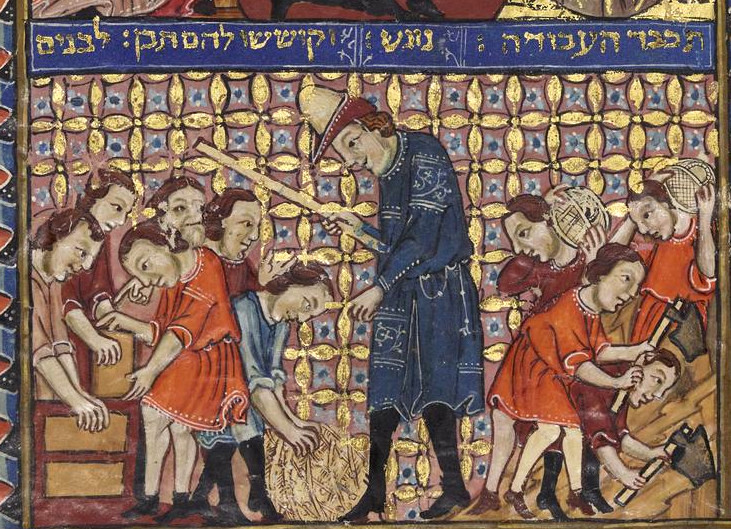 תכבד העבודה : נוגש : וקוששו להם תבן : לבנים